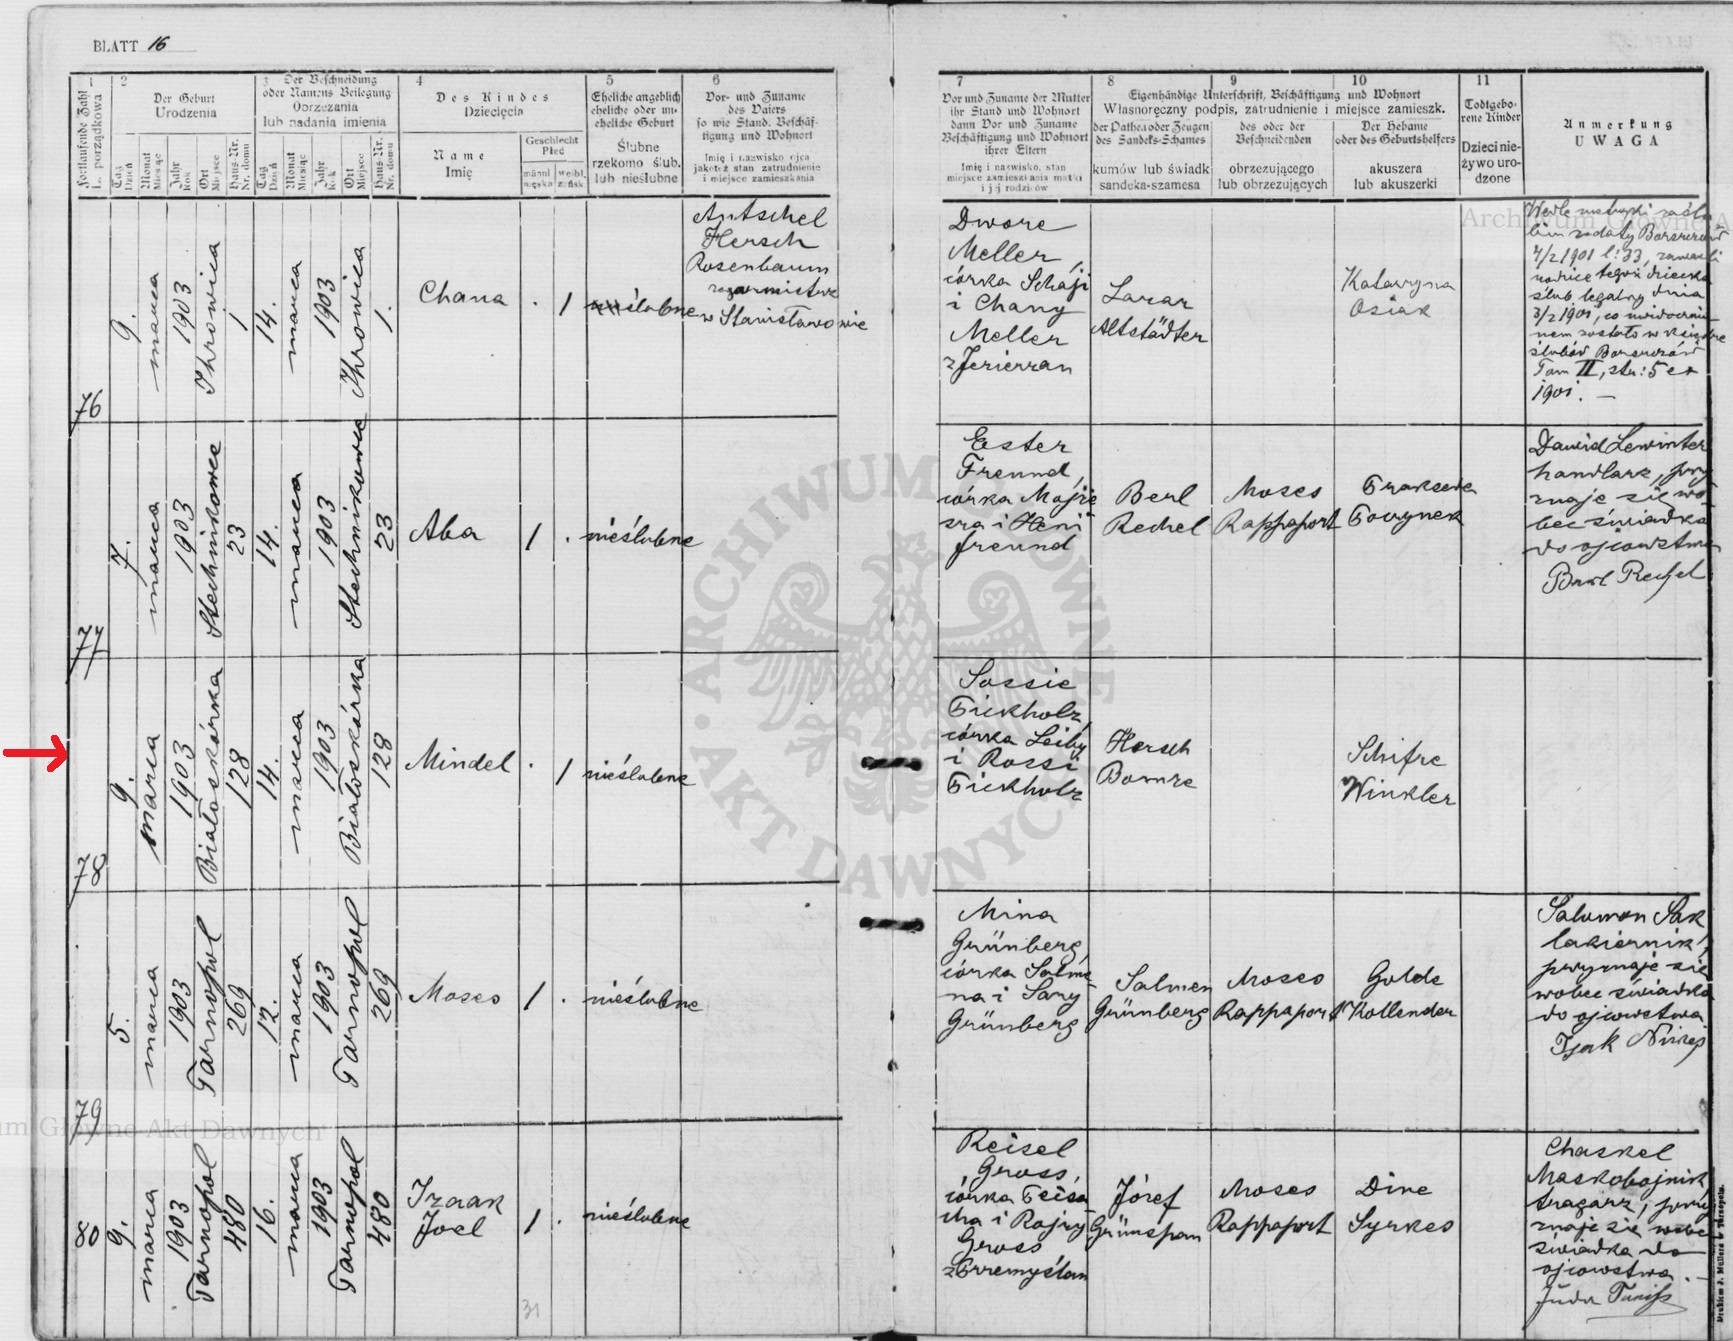 BLATT 16
1
2
3
4
5
6
7
8
9
10
11
Fortlaufende Zahl
L. porządkowa
Der Geburt
Urodzenia
Tag
Dzień
Monat
Miesiąc
Jahr
Rok
Ort
Miejsce
Haus-Nr.
Nr. domu
Der Beschneidung
oder Namens Beilegung
Obrzezania
lub nadania imienia
Tag
Dzień
Monat
Miesiąc
Jahr
Rok
Ort
Miejsce
Haus-Nr.
Nr. domu
Des Kindes
Dziecięcia
Name
Imię
Geschlecht
Płeć
männl
męzska
weibl.
żeńsk.
Eheliche angeblich
eheliche oder un-
eheliche Geburt
Ślubne
rzekomo ślub.
lub nieślubne
Vor- und Zuname
des Vaters
so wie Stand, Beschäf-
tigung und Wohnort
Imię i nazwisko ojca
jakoteż stan zatrudnienie
i miejsce zamieszkania
Vor und Zuname der Mutter
ihr Stand und Wohnort
dann Vor und Zuname
Beschäftigung und Wohnort
ihrer Eltern
Imię i nazwisko, stan
miejsce zamieszkania matki
i jej rodziców
Eigenhändige Unterschrift, Beschäftigung und Wohnort
Własnoręczny podpis, zatrudnienie i miejsce zamieszk.
der Pathen oder Zeugen
des Sandeks-Schames
kumów lub świadk
sandeka-szamesa
des oder der
Beschneidenden
obrzezującego
lub obrzezujących
Der Hebame
oder des Geburtshelfers
akuszera
lub akuszerki
Todtgebo-
rene Kinder
Dzieci nie-
żywo uro-
dzone
Anmerkung
UWAGA
76
9.
marca
1903
Ihrowica
1
14.
marca
1903
Ihrowica
1.
Chana
. 1
ślubne
Antschel
Hersch
Rosenbaum
zegarmistrz
w Stanisławowie
Dwore
Meller,
córka Schaji
i Chany
Meller
z Jezierzan
Lazar
Altstädter
Katarzyna
Osiak
Wedle metryki zaślu
bin wydały Borszczów
4/2 1901 l: 33, zawarli
rodzice tegoż dziecka
ślub legalny dnia
3/2 1901, co uwidocznio
nem zostało w księdze
ślubów Borszczów
Tom II, str: 5 ex
1901. —
77
7.
marca
1903
Stechnikowce
23
14.
marca
1903
Stechnikowce
23
Aba
1 .
nieślubne
Ester
Freund,
córka Majże
sza i Heni
Freund
Berl
Rechel
Moses
Rappaport
Dawid Lewinter
handlarz, przy
znaje się wo
bec świadka
do ojcowstwa
78
9.
marca
1903
Białoskórka
128
14.
marca
1903
Białoskórka
128
Mindel
. 1
nieślubne
Sossie
Pickholz,
córka Leiby
i Rossi
Pickholz
Hersch
Bomze
Schifre
Winkler
79
5.
marca
1903
Tarnopol
269
12.
marca
1903
Tarnopol
269
Moses
1 .
nieślubne
Mina
Grünberg,
córka Salmo
na i Sary
Grünberg
Salmen
Grünberg
Moses
Rappaport
Golde
Kollender
Salomon Sak
lakiernik,
przyznaje się
wobec świadka
do ojcowstwa
80
9.
marca
1903
Tarnopol
480
16.
marca
1903
Tarnopol
480
Izaak
Joel
1 .
nieślubne
Reisel
Gross,
córka Peisa
cha i Rajzy
Gross
z Przemyślan
Józef
Grünspan
Moses
Rappaport
Dine
Syrkes
Chaskel
Maskobojnik
tragarz, przy
znaje się wobec
świadka do
ojcowstwa. —
31
Drukiem J. Müllera w Tarnopolu.
ARCHIWUM GŁÓWNE AKT DAWNYCH
Archiwum Główne A
um Główne Akt Dawnych